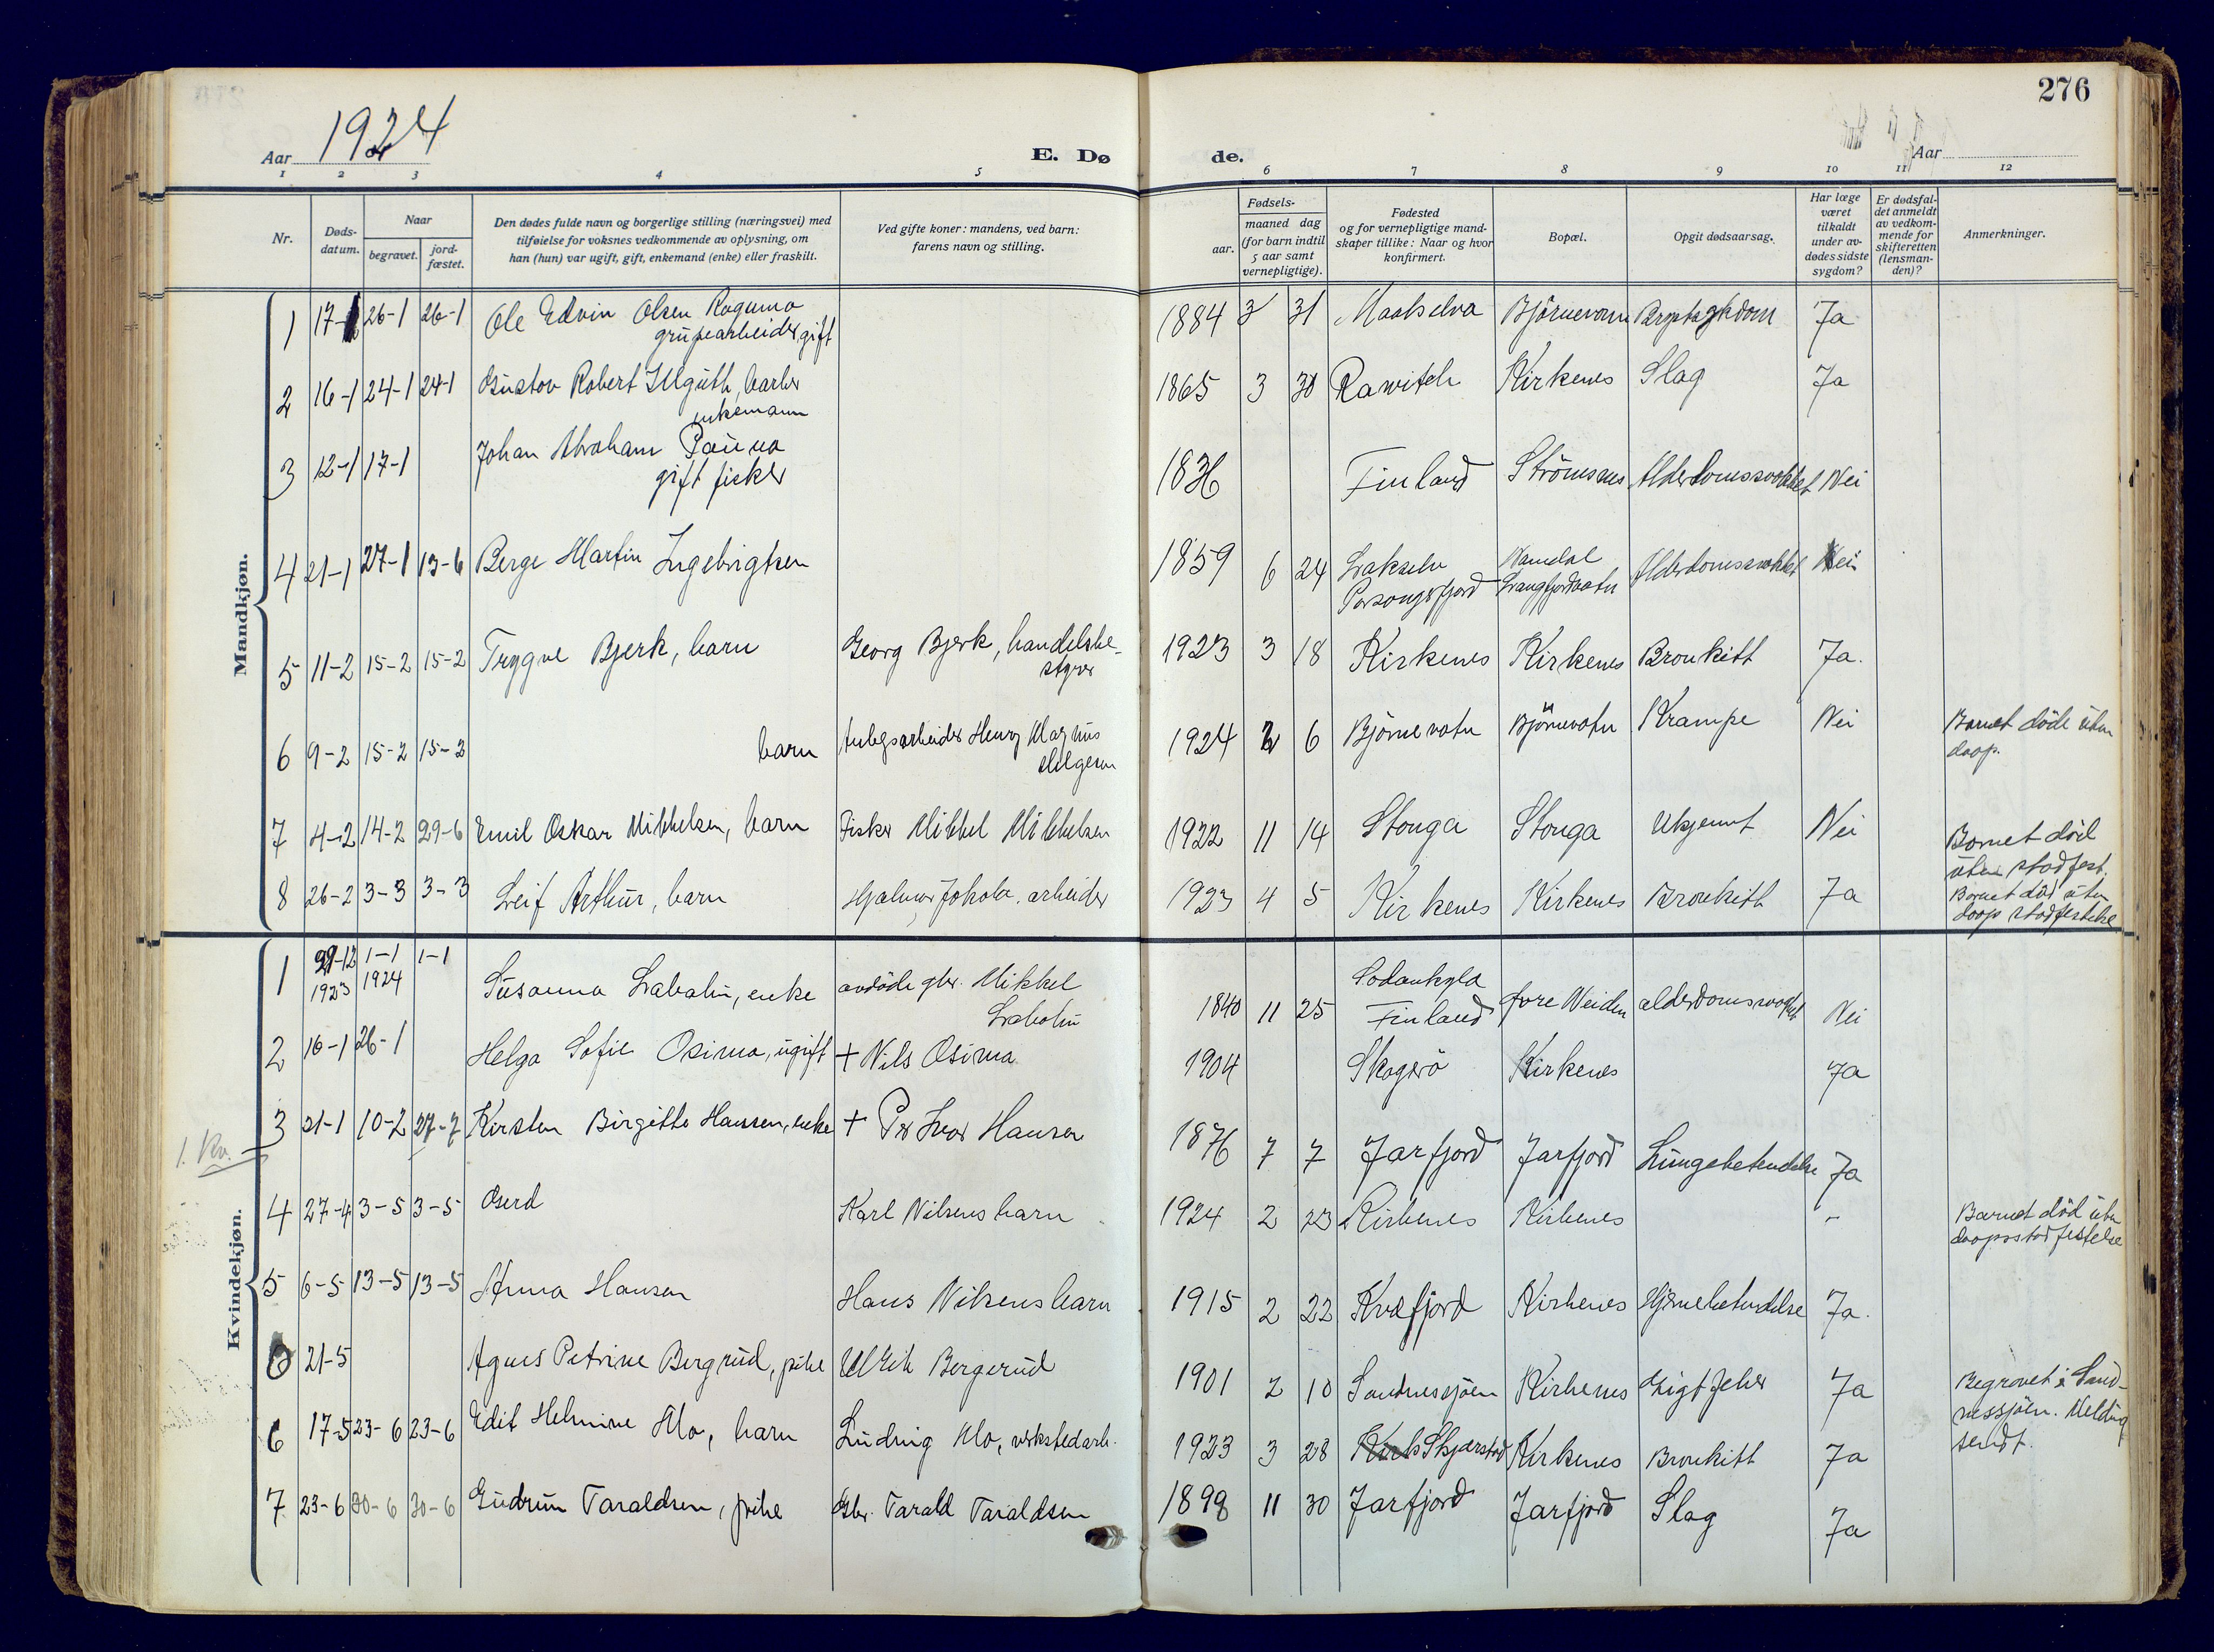 276
Aar 1924
E. Dø
de.
Aar
1 2 3 4 5 6 7 8 9 10 11 12
Nr.
Døds-
datum.
Naar
begravet.
jord-
fæstet.
Den dødes fulde navn og borgerlige stilling (næringsvei) med
tilføielse for voksnes vedkommende av oplysning, om
han (hun) var ugift, gift, enkemand (enke) eller fraskilt.
Ved gifte koner: mandens, ved barn:
farens navn og stilling.
Fødsels-
aar.
maaned dag
(for barn indtil
5 aar samt
vernepligtige).
Fødested
og for vernepligtige mand-
skaper tillike: Naar og hvor
konfirmert.
Bopæl.
Opgit dødsaarsag.
Har læge
været
tilkaldt
under av-
dødes sidste
sygdom?
Er dødsfal-
det anmeldt
av vedkom-
mende for
skifteretten
(lensman-
den)?
Anmerkninger.
Mandkjøn.
1 17-1 26-1 26-1 Ole Edvin Olsen 1884 3 31 Maalselva Ja
grupearbeider, gift
2 16-1 24-1 24-1 Gustav Robert Illguth, barber 1865 3 30 Rawitch Kirkenes Slag Ja
enkemann
3 12-1 17-1 Johan Abraham 1836 Finland Strömsnes Nei
gift fisker
4 21-1 27-1 13-6 Berge Martin Ingebrigtsen 1859 6 24 Lakselv Namdal Nei
Porsangerfjord Langfjordvatn
5 11-2 15-2 15-2 Trygve Bjerk, barn Georg Bjerk, handelsbe- 1923 3 18 Kirkenes Kirkenes Bronkitt Ja.
styrer
6 9-2 15-2 15-2 barn Anlegsarbeider Henry Magnus 1924 2 6 Björnevatn Björnevatn Krampe Nei Barnet döde uten
Helgesen daap.
7 4-2 14-2 29-6 Emil Oskar Mikkelsen, barn Fisker Mikkel Mikkelsen 1922 11 14 Stonga Stonga Ukjennt Nei Barnet död
uten stadfest.
8 26-2 3-3 3-3 Leif Arthur, barn Hjalmar Jokola, arbeider 1923 4 5 Kirkenes Kirkenes Bronkitt Ja Barnet död uten
daap stadfestelse
Kvindekjøn.
1 29-12 1-1 1-1 Susanna Labahn, enke avdöde gbr. Mikkel 1840 11 25 Sodankyla övre Neiden Nei
1923 1924 Labahn Finland
2 16-1 26-1 Helga Sofie Osima, ugift + Nils Osima 1904 Skogerö Kirkenes Ja
1. Kv.
3 21-1 10-2 27-7 Kirsten Birgitte Hansen, enke + Per Ivar Hansen 1876 7 7 Jarfjord Jarfjord Lungebetendelse Ja
4 27-4 3-5 3-5 Karl Nilsens barn 1924 2 23 Kirkenes Kirkenes - Barnet död uten
daapsstadfestelse
5 6-5 13-5 13-5 Anna Hansen Hans Nilsens barn 1915 2 22 Kvæfjord Kirkenes Hjernebetendelse Ja.
6 21-5 Agnes Petrine Bergrud, pike Ulrik Bergerud 1901 2 10 Sandnessjöen Kirkenes Gigtfeber Ja Begravet i Sand-
nessjöen. Melding
sendt.
6 17-5 23-6 23-6 Edit Helmine Mo, barn Ludvig Mo, verkstedarb. 1923 3 28 Skjerstad Kirkenes Bronkitt Ja
7 23-6 30-6 30-6 Gudrun Taraldsen, pike Gbr. Tarald Taraldsen 1898 11 30 Jarfjord Jarfjord Slag Ja